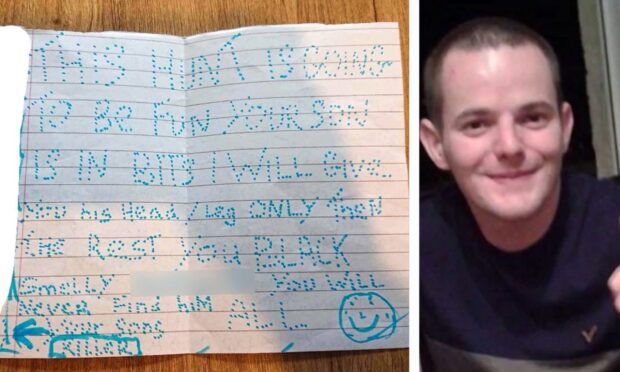 THIS HUNT IS GOING
TO BE FUN YOUR SON
IS IN BITS I WILL GIVE
YOU his HEAD/Leg ONLY Then
the REST YOU BLACK
Smelly You WILL
NEVER Find HIM ALL
Your Sons
KILLER